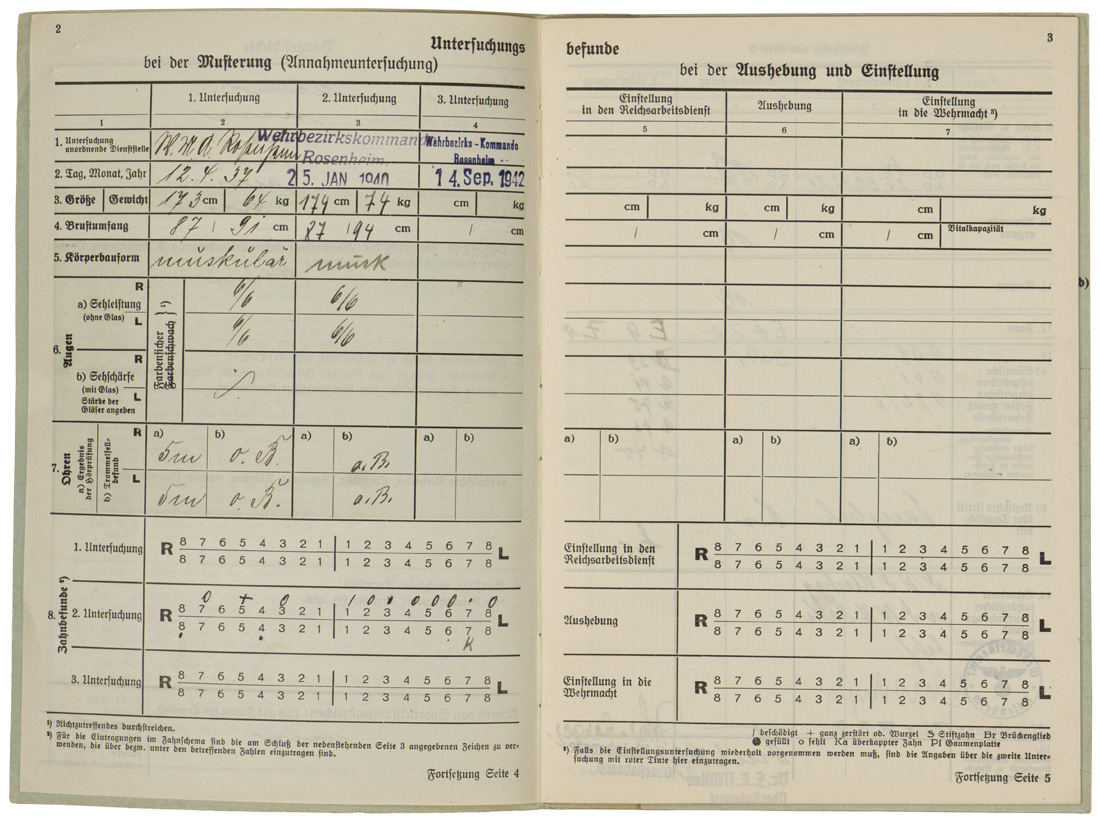 2
Untersuchungs
bei der Musterung (Annahmeuntersuchung)
1. Untersuchung 2. Untersuchung 3. Untersuchung
1 2 3 4
1. Untersuchung anordnende Dienststelle
W.M.A. Wehrbezirkskommand Rosenheim. Wehrbezirks-Kommando Rosenheim
2. Tag, Monat, Jahr 12.4.37 25. JAN 1940 14. Sep. 1942
3. Größe Gewicht 173 cm 64 kg 174 cm 74 kg cm kg
4. Brustumfang 87 / 91 cm 87 / 94 cm / cm
5. Körperbauform muskulär musk
6. Augen
a) Sehleistung (ohne Glas) R 6/6 6/6
L 6/6 6/6
Farbensicher Farbenschwach } ¹)
b) Sehschärfe (mit Glas) Stärke der Gläser angeben R L
7. Ohren
a) Ergebnis der Hörprüfung b) Trommelfellbefund
a) b) a) b) a) b)
R 5m o.B. o.B.
L 5m o.B. o.B.
8. Zahnbefunde ²)
1. Untersuchung R 8 7 6 5 4 3 2 1 1 2 3 4 5 6 7 8 L
8 7 6 5 4 3 2 1 1 2 3 4 5 6 7 8
2. Untersuchung R 8 7 6 5 4 3 2 1 1 2 3 4 5 6 7 8 L
8 7 6 5 4 3 2 1 1 2 3 4 5 6 7 8
3. Untersuchung R 8 7 6 5 4 3 2 1 1 2 3 4 5 6 7 8 L
8 7 6 5 4 3 2 1 1 2 3 4 5 6 7 8
¹) Nichtzutreffendes durchstreichen.
²) Für die Eintragungen im Zahnschema sind die am Schluß der nebenstehenden Seite 3 angegebenen Zeichen zu ver-
wenden, die über bezw. unter den betreffenden Zahlen einzutragen sind.
Fortsetzung Seite 4
3
befunde
bei der Aushebung und Einstellung
Einstellung in den Reichsarbeitsdienst Aushebung Einstellung in die Wehrmacht ³)
5 6 7
cm kg cm kg cm kg
/ cm / cm / cm Vitalkapazität
b)
a) b) a) b) a) b)
Einstellung in den Reichsarbeitsdienst R 8 7 6 5 4 3 2 1 1 2 3 4 5 6 7 8 L
8 7 6 5 4 3 2 1 1 2 3 4 5 6 7 8
Aushebung R 8 7 6 5 4 3 2 1 1 2 3 4 5 6 7 8 L
8 7 6 5 4 3 2 1 1 2 3 4 5 6 7 8
Einstellung in die Wehrmacht R 8 7 6 5 4 3 2 1 1 2 3 4 5 6 7 8 L
8 7 6 5 4 3 2 1 1 2 3 4 5 6 7 8
/ beschädigt + ganz zerstört od. Wurzel S Stiftzahn Br Brückenglied
● gefüllt o fehlt Ka überkappter Zahn Pl Gaumenplatte
³) Falls die Einstellungsuntersuchung wiederholt vorgenommen werden muß, sind die Angaben über die zweite Unter-
suchung mit roter Tinte hier einzutragen.
Fortsetzung Seite 5